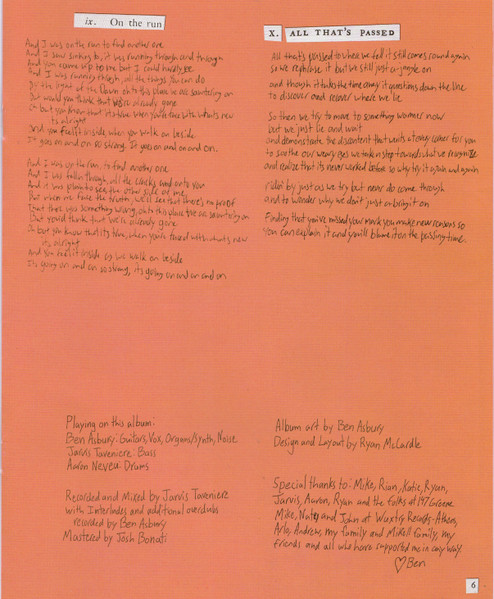 ix. On the run
And I was on the run to find another one
And I saw sinking to, it was running through and through
And you came up to me but I could hardly see
And I was running through, all the things you can do
By the light of the dawn onto this place we are sauntering on
But would you think that we're already gone
Oh but you know that its time when you're faced with what's new
its alright
And you feel it inside, when you walk on beside
It goes on and on so strong. It goes on and on and on.
And I was up the run, to find another one
And I was fallin through, all the cracks and onto you
And it was plain to see, the other side of me
But when we face the truth, we'll see that there's no proof
That there was something wrong, onto this place we are sauntering on
But you'd think that we're already gone
Oh but you know that its time, when you're faced with what's new
its alright
And you feel it inside as we walk on beside
Its going on and on so strong, its going on and on and on
X. ALL THAT'S PASSED
All that's passed to when we fell it still comes round again
So we rephrase it but we still just struggle on
and though it takes the time away it questions down the line
to discover and recover where we lie
So then we try to move to something warmer now
but we just lie and wait
and demonstrate the discontent that waits a today corner for you
to soothe our weary eyes we take in step towards what we recognize
and realize that its never worked before so why try it again and again
ridin' by just as we try but never do come through
and to wonder why we don't just or bring it on
Finding that you've missed your mark you make new reasons so
You can explain it and you'll blame it on the passing time.
Playing on this album:
Ben Asbury: Guitars, Vox, Organs/Synth, Noise
Jarvis Taveniere: Bass
Aaron Neveu: Drums
Recorded and Mixed by Jarvis Taveniere
with Interludes and additional overdubs
recorded by Ben Asbury
Mastered by Josh Bonati
Album art by Ben Asbury
Design and Layout by Ryan McCardle
Special thanks to: Mike, Rian, Katie, Ryan,
Jarvis, Aaron, Ryan and the folks at 197 Greene
Mike, Nate and John at Wuxtry Records-Athens,
Arlo, Andrew, my family and Mikell family, my
friends and all who have supported me in any way.
♡Ben
6